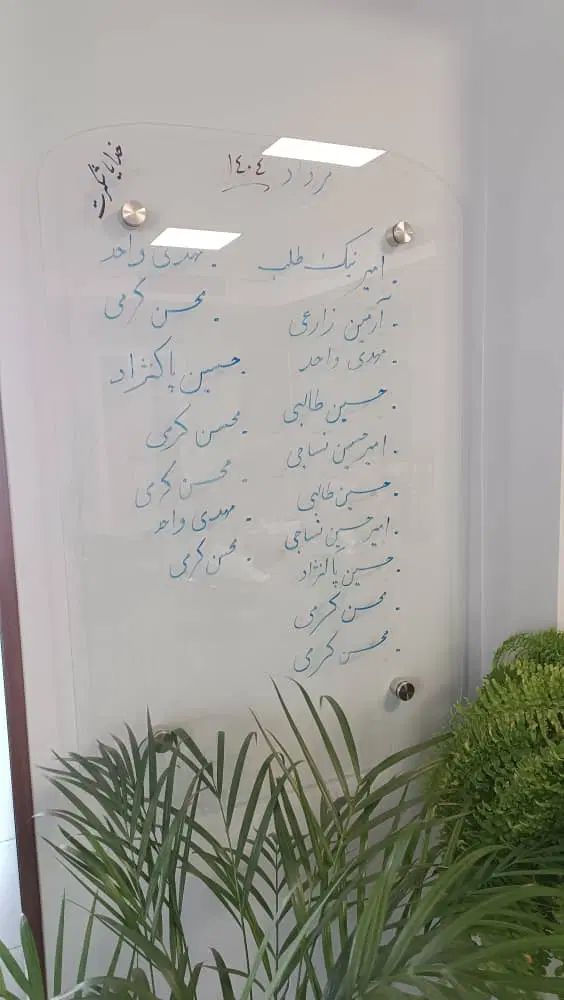 خدایا شکرت
مرداد ۱۴۰۴
. امیر نیک طلب
. آرمین زارعی
. مهدی واحد
. حسین طالبی
. امیرحسین نساجی
. حسین طالبی
. امیرحسین نساجی
. حسین پاکنژاد
. محسن کرمی
. محسن کرمی
. مهدی واحد
. محسن کرمی
. حسین پاکنژاد
. محسن کرمی
. محسن کرمی
. مهدی واحد
. محسن کرمی